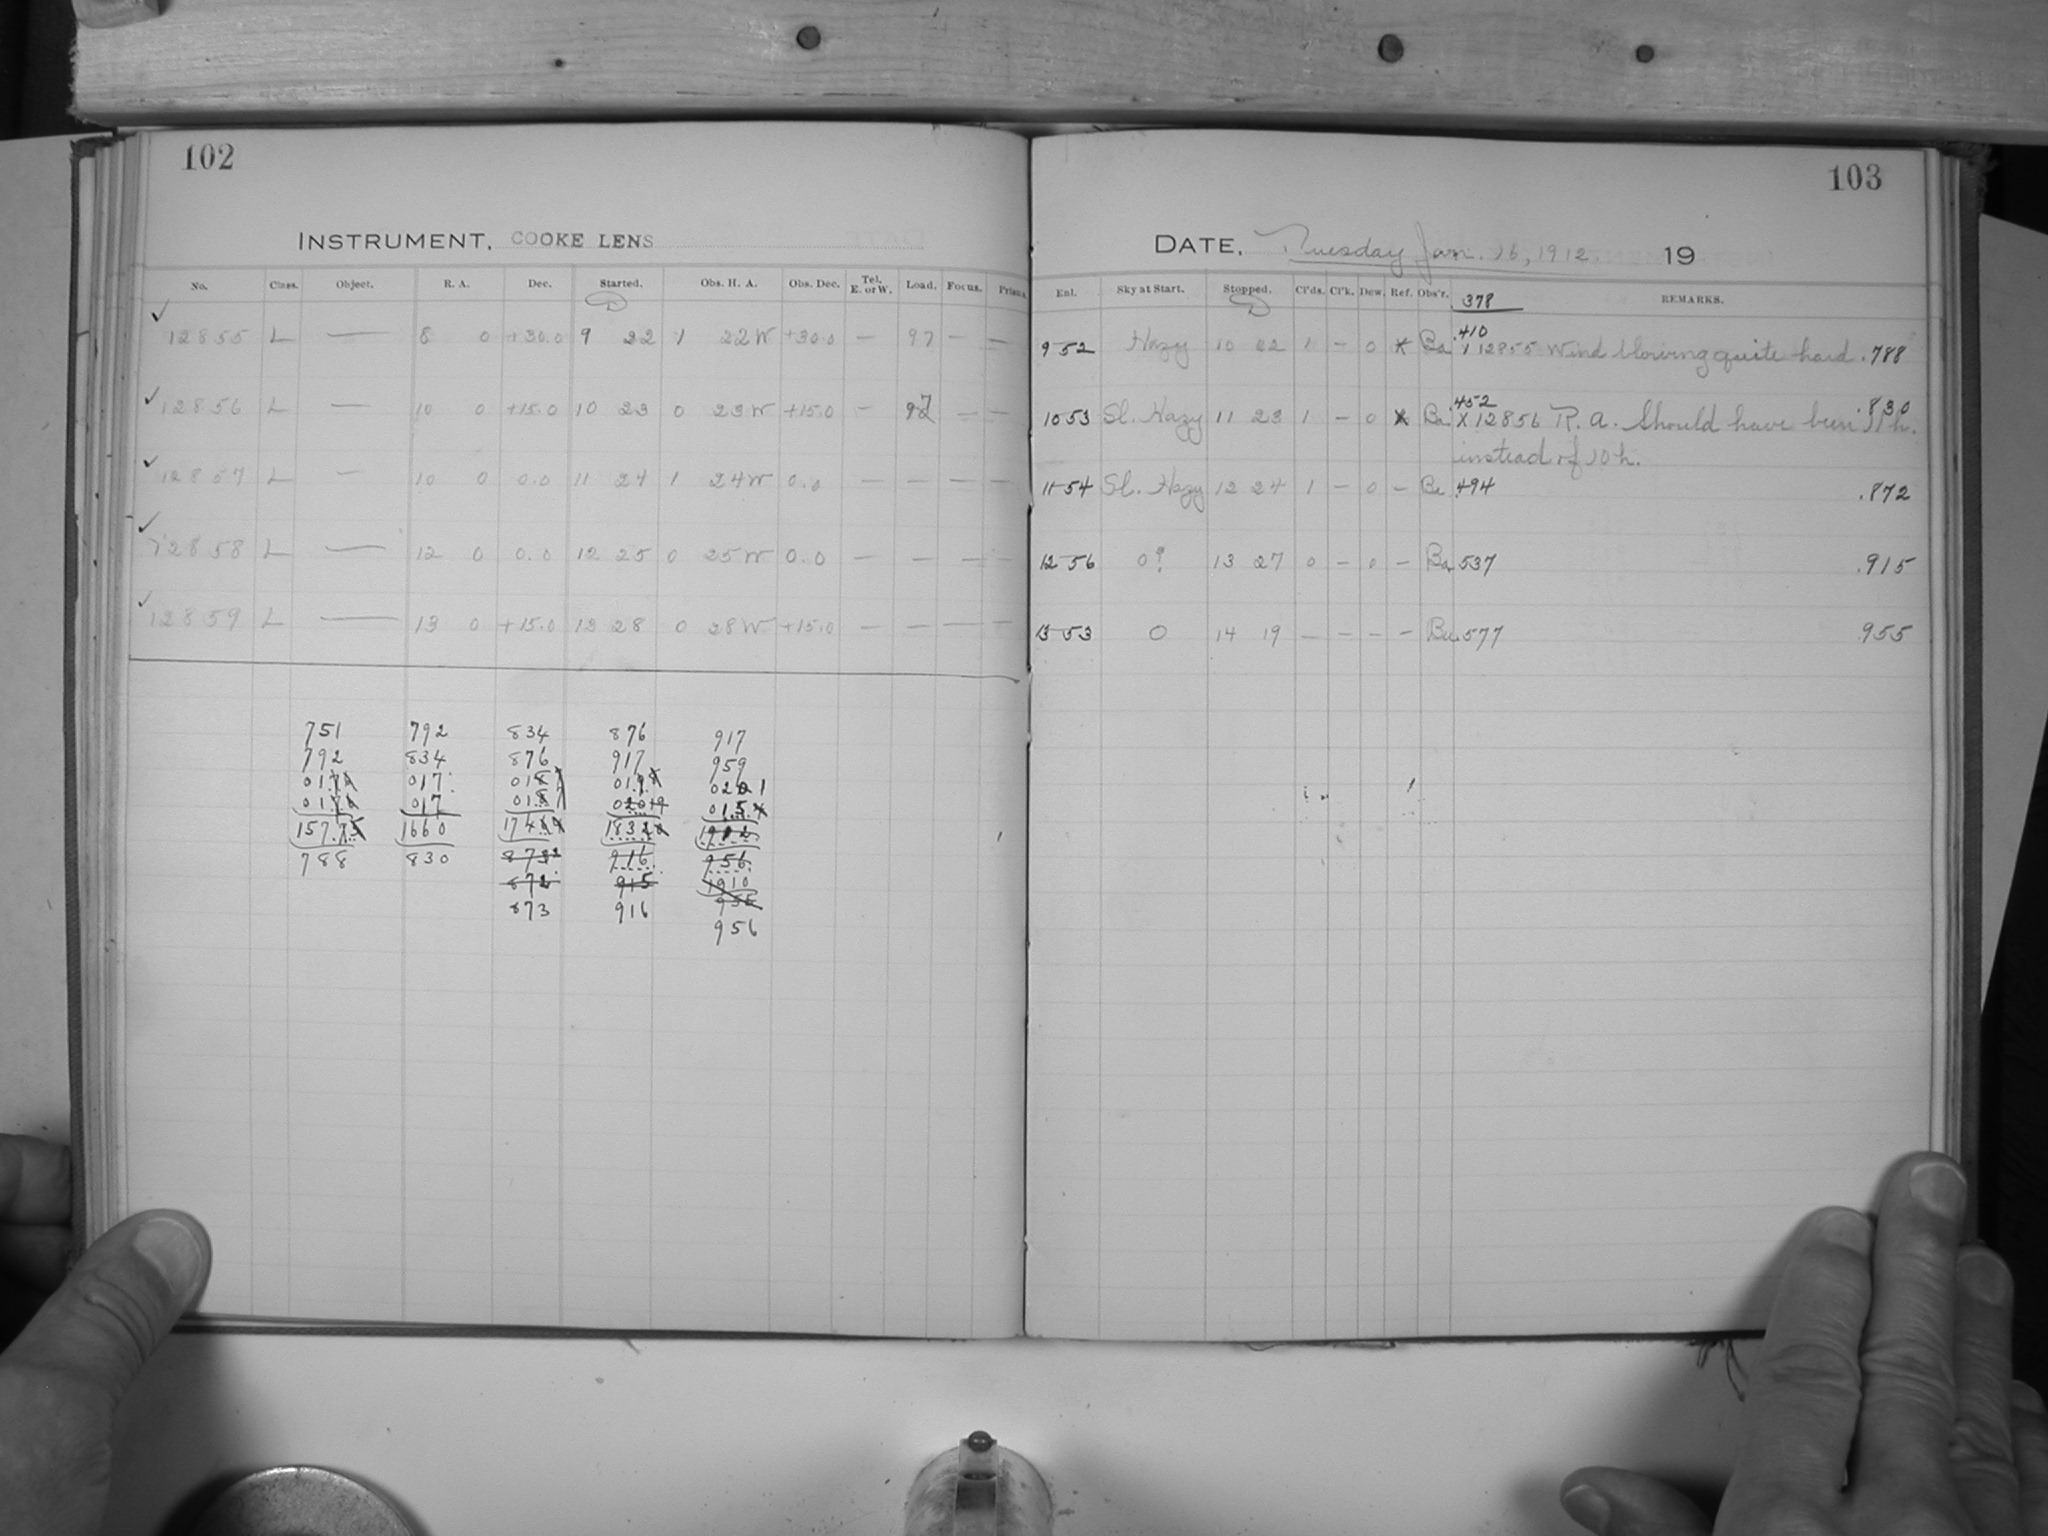 102
INSTRUMENT. COOKE LENS
No. Class. Object. R. A. Dec. Started. Obs. H. A. Obs. Dec. Tel. E. or W. Load. Focus. Prisms
D
✓ 12855 L — 8 0 +30.0 9 22 1 22W +30.0 — 97 — —
✓ 12856 L — 10 0 +15.0 10 23 0 23W +15.0 — 97 — —
✓ 12857 L — 10 0 0.0 11 24 1 24W 0.0 — — — —
✓ 12858 L — 12 0 0.0 12 25 0 25W 0.0 — — — —
✓ 12859 L — 13 0 +15.0 13 28 0 28W +15.0 — — — —
751 792 834 876 917
792 834 876 917 959
017
017
1660
788 830
872 915 1910
873 916
956
103
DATE. Tuesday Jan. 16, 1912. 19
Enl. Sky at Start. Stopped. Cl'ds. Cl'k. Dew. Ref. Obs'r. 378 REMARKS.
D
.410
9 52 Hazy 10 22 1 — 0 * Ba X 12855 Wind blowing quite hard .788
.452 .830
10 53 Sl. Hazy 11 23 1 — 0 X Ba X 12856 R. A. Should have been 11 h.
instead of 10 h.
11 54 Sl. Hazy 12 24 1 — 0 — Ba .494 .872
12 56 0? 13 27 0 — 0 — Ba .537 .915
13 53 0 14 19 — — — — Ba .577 955